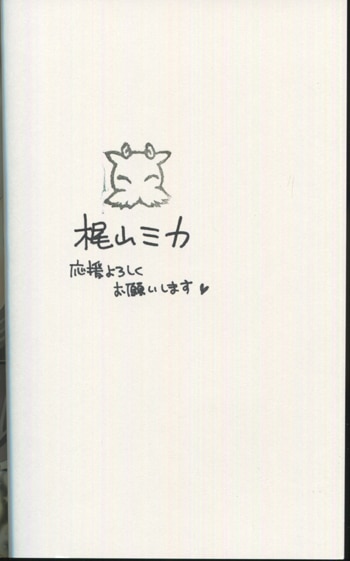 梶山ミカ
応援よろしく
お願いします♥